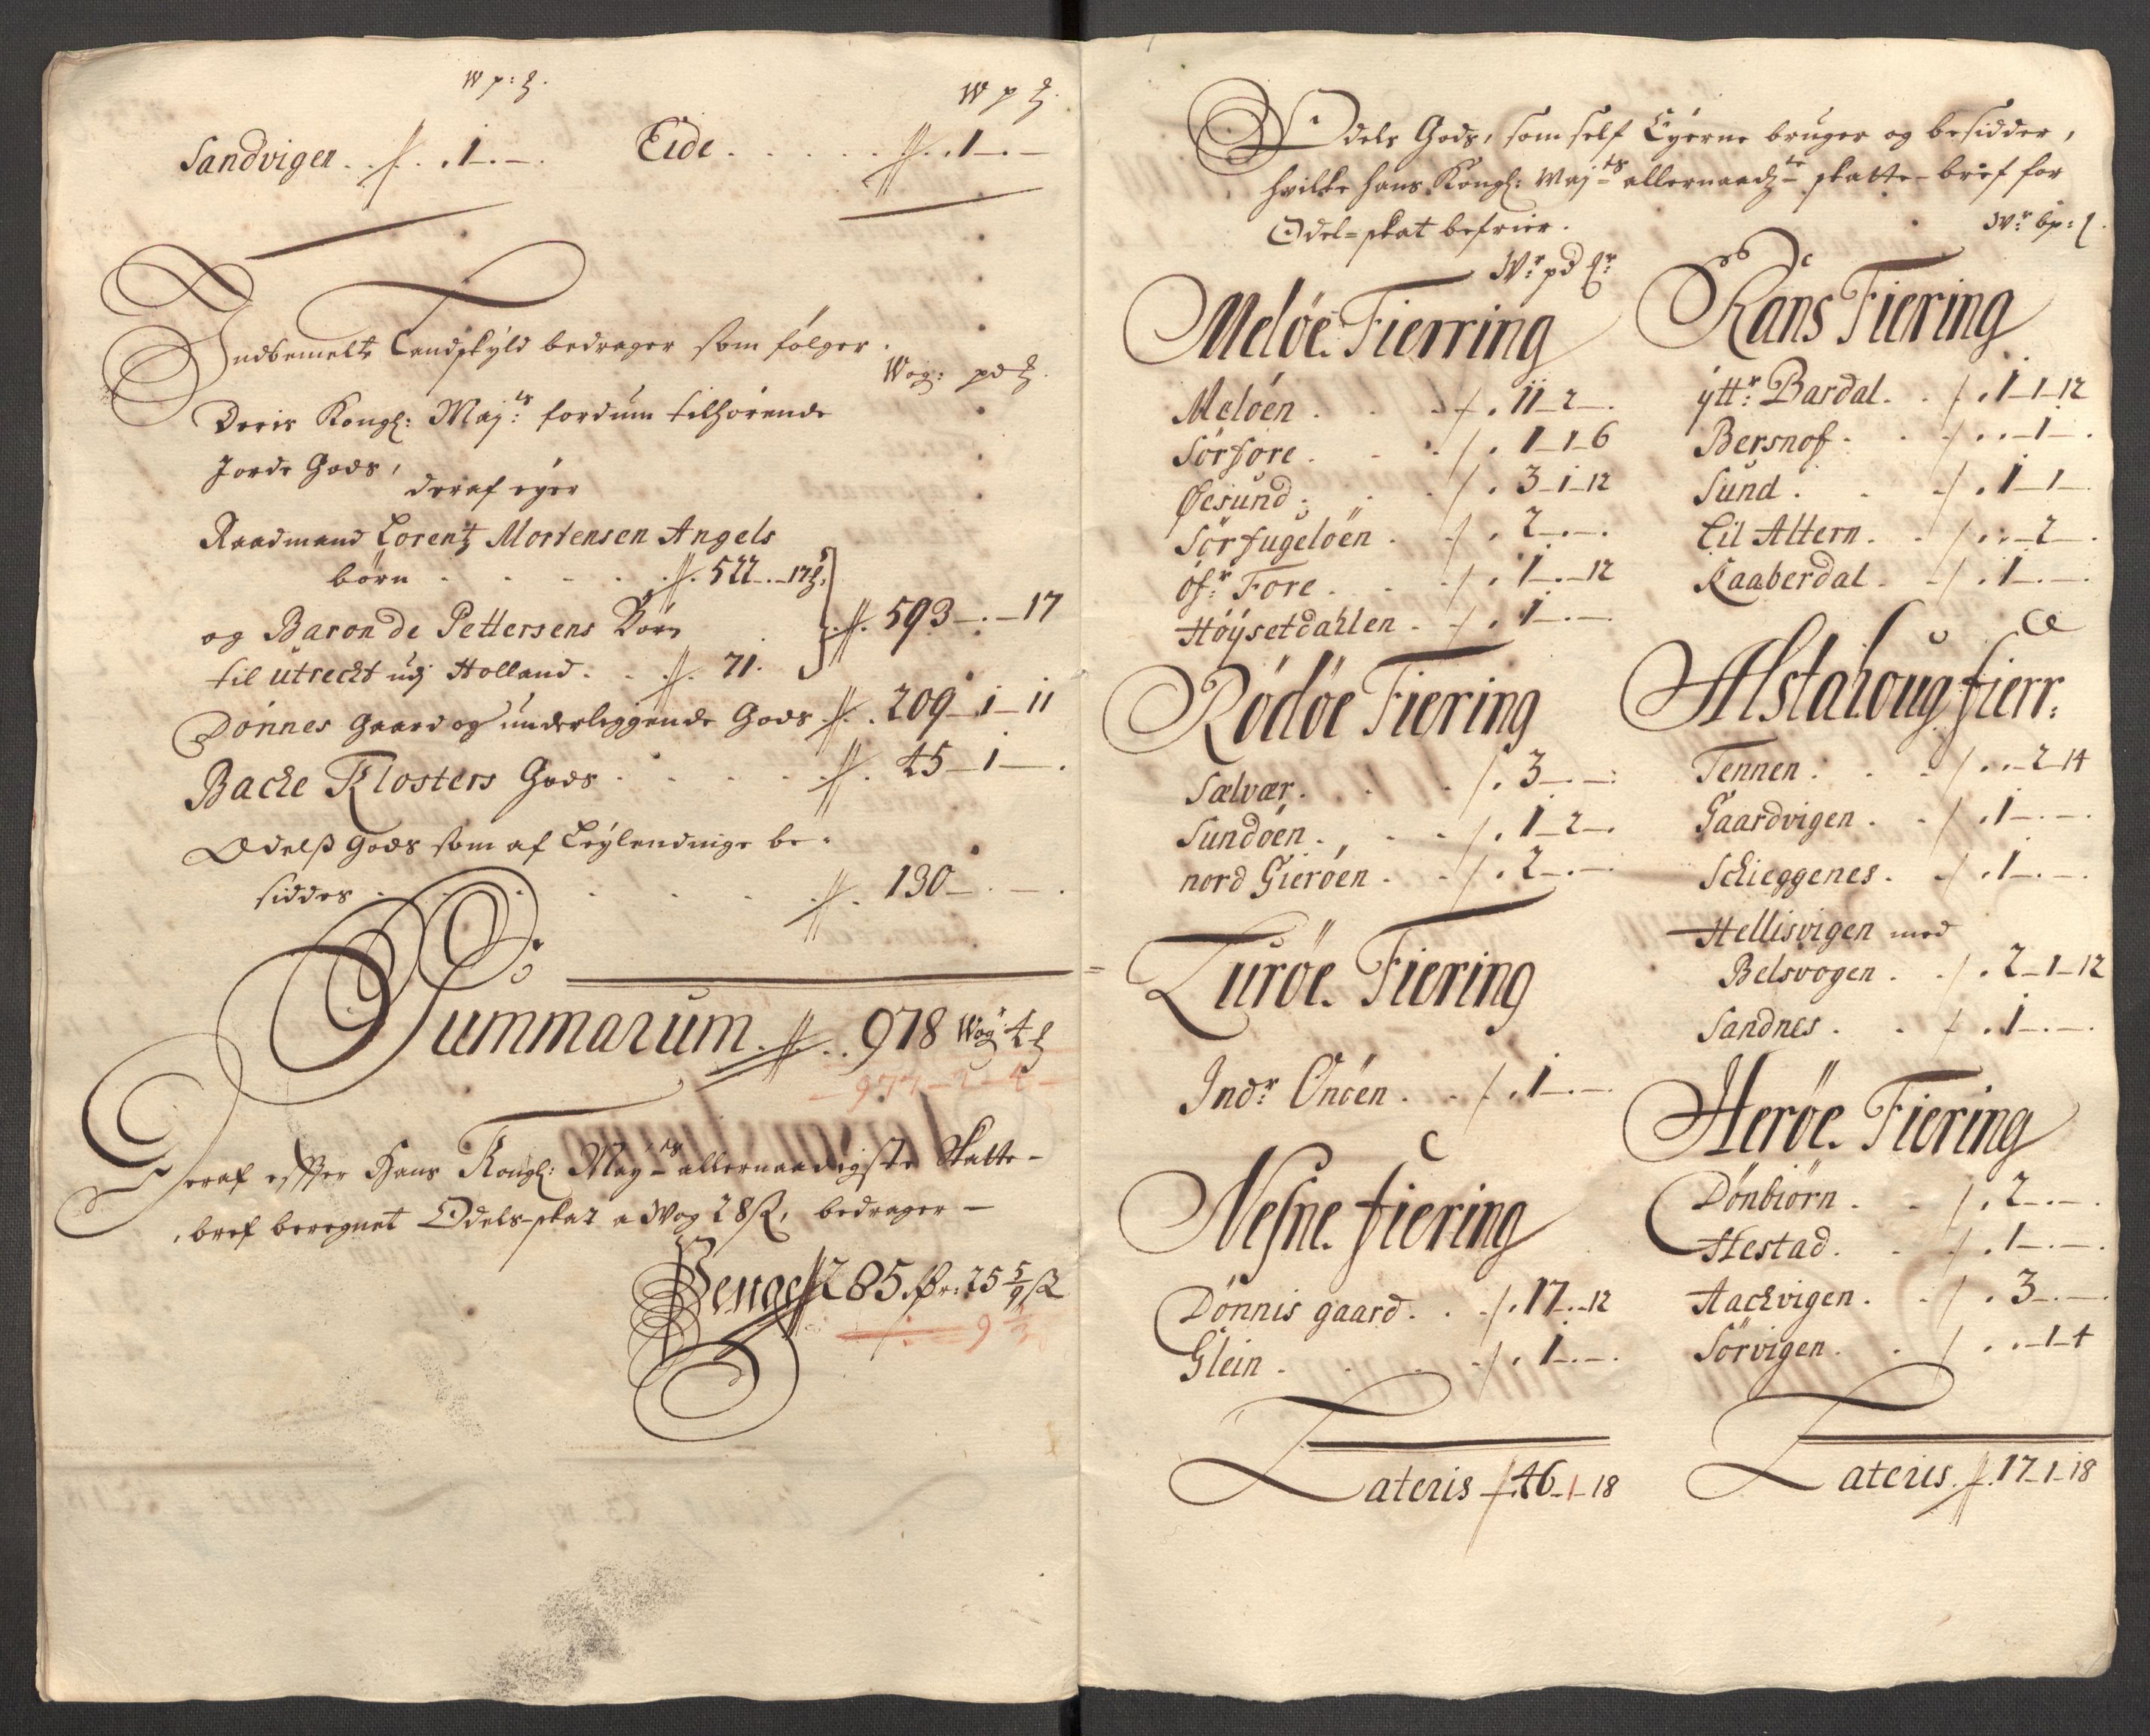 W p: ℔.
W p ℔.
Sandvigen . . # . . 1 . – .
Eide . . . . . # . . 1 – . –
Indbemelte Landskyld bedrager som følger.
Wog: pd ℔.
Deris Kongl: Maj:ts fordum tilhørende
Jorde Gods,
deraf eyer
Raadmand Lorentz Mortensen Angels
børn . . . . . #. 522 . – 17 ℔.
og Baron de Pettersens Børn
#. 593 – . – 17
til Utrecht udj Holland . . . #. 71.
Dønnes Gaard og underliggende Gods #. 209 – 1 – 11
Backe Klosters Gods . . . . #. 45 – 1 – .
Odelss Gods som af Leylendinge be-
siddes . . . . . . #. 130 – . – .
Summarum . # . . 978 Wog 4 ℔
977 – 2 – 4 –
Heraf effter Hans Kongl: May:ts allernaadigste Skatte-
bref beregnet Odels-skat a Wog 28 ß, bedrager –
Penge # 285 Dr: 25 5/9 ß
9 1/3
Odels Gods, som self Eyerne bruger og besidder,
hvilke hans Kongl: Maj:ts allernaadgte skatte-bref for
Odel-skat befrier.
Wr pd ℔r
Meløe Fierring
Meløen . . . 11 – 2 – .
Sørfore . . . 1 – 1 – 6
Øesund . . . 3 – 1 – 12
Sørfugeløen . . 2 – . – .
Øfr: Fore . . . 1 – . – 12
Høysetdahlen . . 1 – . – .
Rødøe Fiering
Sælvær . . . 3 – . – .
Sundøen . . . 1 – 2 – .
nord Gierøen . . 2 – . – .
Lurøe Fiering
Indr Onøen . . . 1 – . – .
Nesne fiering
Dønnis gaard . . 17 – . – 12
Glein . . . . 1 – . – .
Lateris – # 46 – 1 – 18
Wr bp: ℔.
Rans Fiering
ÿttr: Bardal . . . 1 – 1 – 12
Bersnof . . . . – 1 – .
Sund . . . 1 – 1 – .
Lil Altern . . . . – 2 – .
Kaaberdal . . . 1 – . – .
Alstahoug fierr:
Tennen . . . . – 2 – 14
Gaardvigen . . . 1 – . – .
Schieggenes . . . 1 – . – .
Hellisvigen med
Belsvogen . . . 2 – 1 – 12
Sandnes . . . 1 – . – .
Herøe Fiering
Dønbiørn . . . 2 – . – .
Hestad . . . 1 – . – .
Aackvigen . . . 3 – . – .
Sørvigen . . . . – 1 – 4
Lateris . # . 17 – 1 – 18